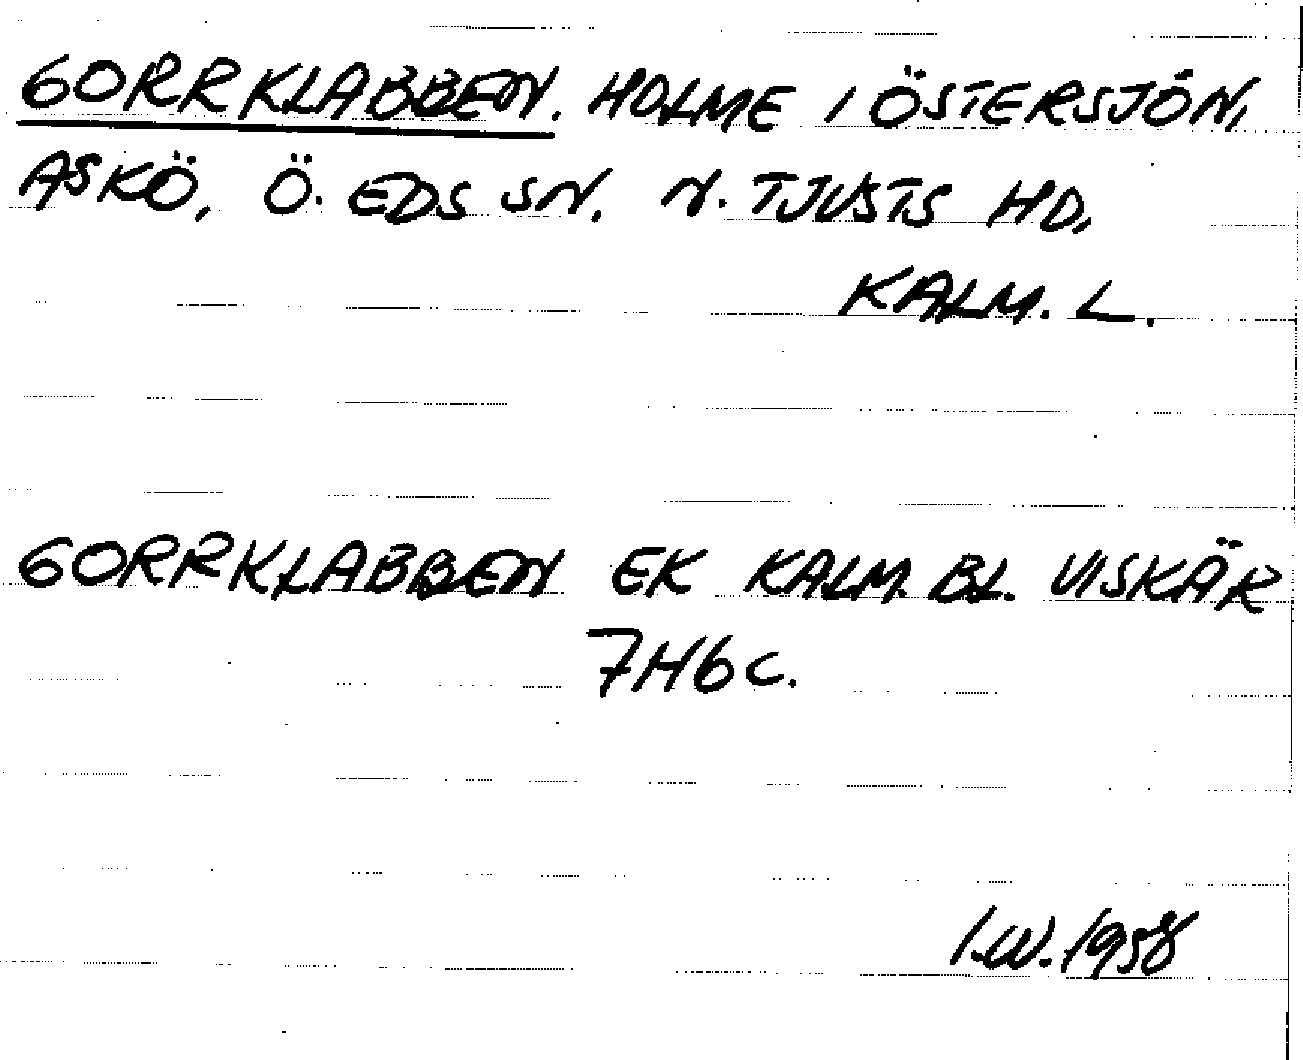 GORRKLABBEN. HOLME I ÖSTERSJÖN,
ASKÖ, Ö. EDS SN. N. TJUSTS HD.
KALM. L.
GORRKLABBEN EK KALM. BL. VISKÄR
7H6c.
I.W. 1958